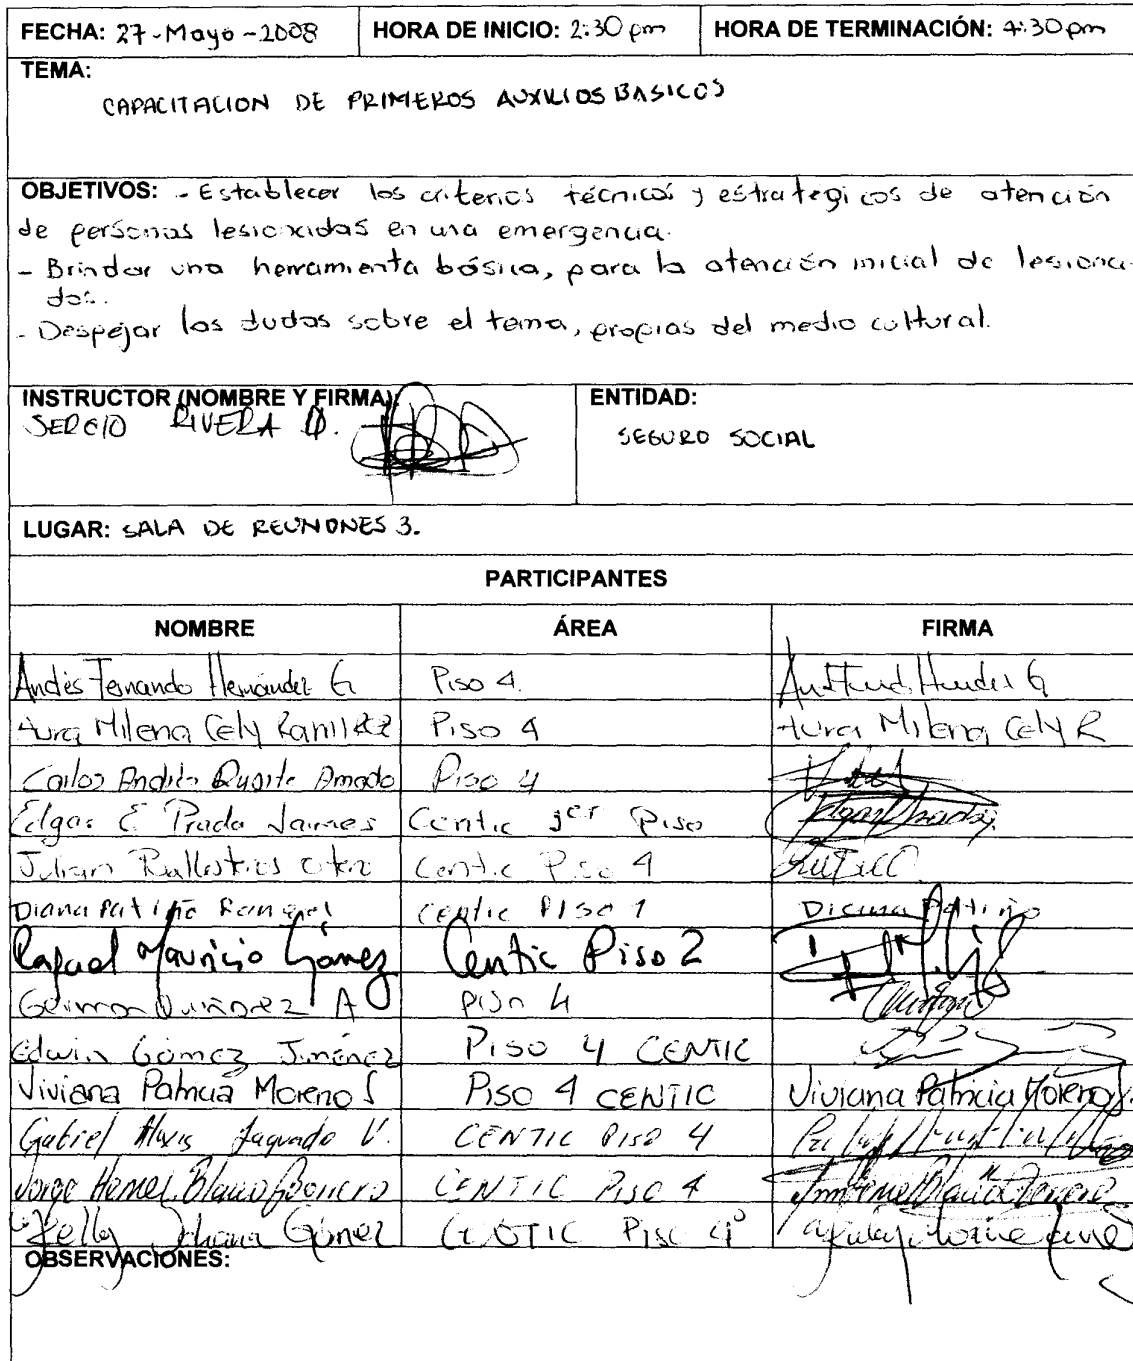 FECHA: 27-Mayo-2008 HORA DE INICIO: 2:30 pm HORA DE TERMINACIÓN: 4:30 pm
TEMA:
CAPACITACION DE PRIMEROS AUXILIOS BASICOS
OBJETIVOS: - Establecer los criterios técnicos y estrategicos de atención
de personas lesionadas en una emergencia.
- Brindar una herramienta básica, para la atención inicial de lesiona-
dos.
- Despejar las dudas sobre el tema, propias del medio cultural.
INSTRUCTOR (NOMBRE Y FIRMA): ENTIDAD:
SERGIO RIVERA SEGURO SOCIAL
LUGAR: SALA DE REUNIONES 3.
PARTICIPANTES
NOMBRE ÁREA FIRMA
Andrés Fernando Hernández G Piso 4.
Aura Milena Cely Ramirez Piso 4 Aura Milena Cely R
Carlos Andrés Duarte Amado Piso 4
Edgar E Prada Jaimes Centic 3er Piso
Julian Ballesteros Centic Piso 4
Diana Patiño Rangel Centic PISO 1 Diana Patiño
Rafael Mauricio Gómez Centic Piso 2
German Quiñonez A piso 4
Edwin Gómez Jiménez Piso 4 CENTIC
Viviana Patricia Moreno S Piso 4 CENTIC Viviana Patricia Moreno S.
Gabriel V. CENTIC PISO 4
Jorge Hemel Blanco CENTIC Piso 4
Kelly Johana Gómez CENTIC Piso 4°
OBSERVACIONES: